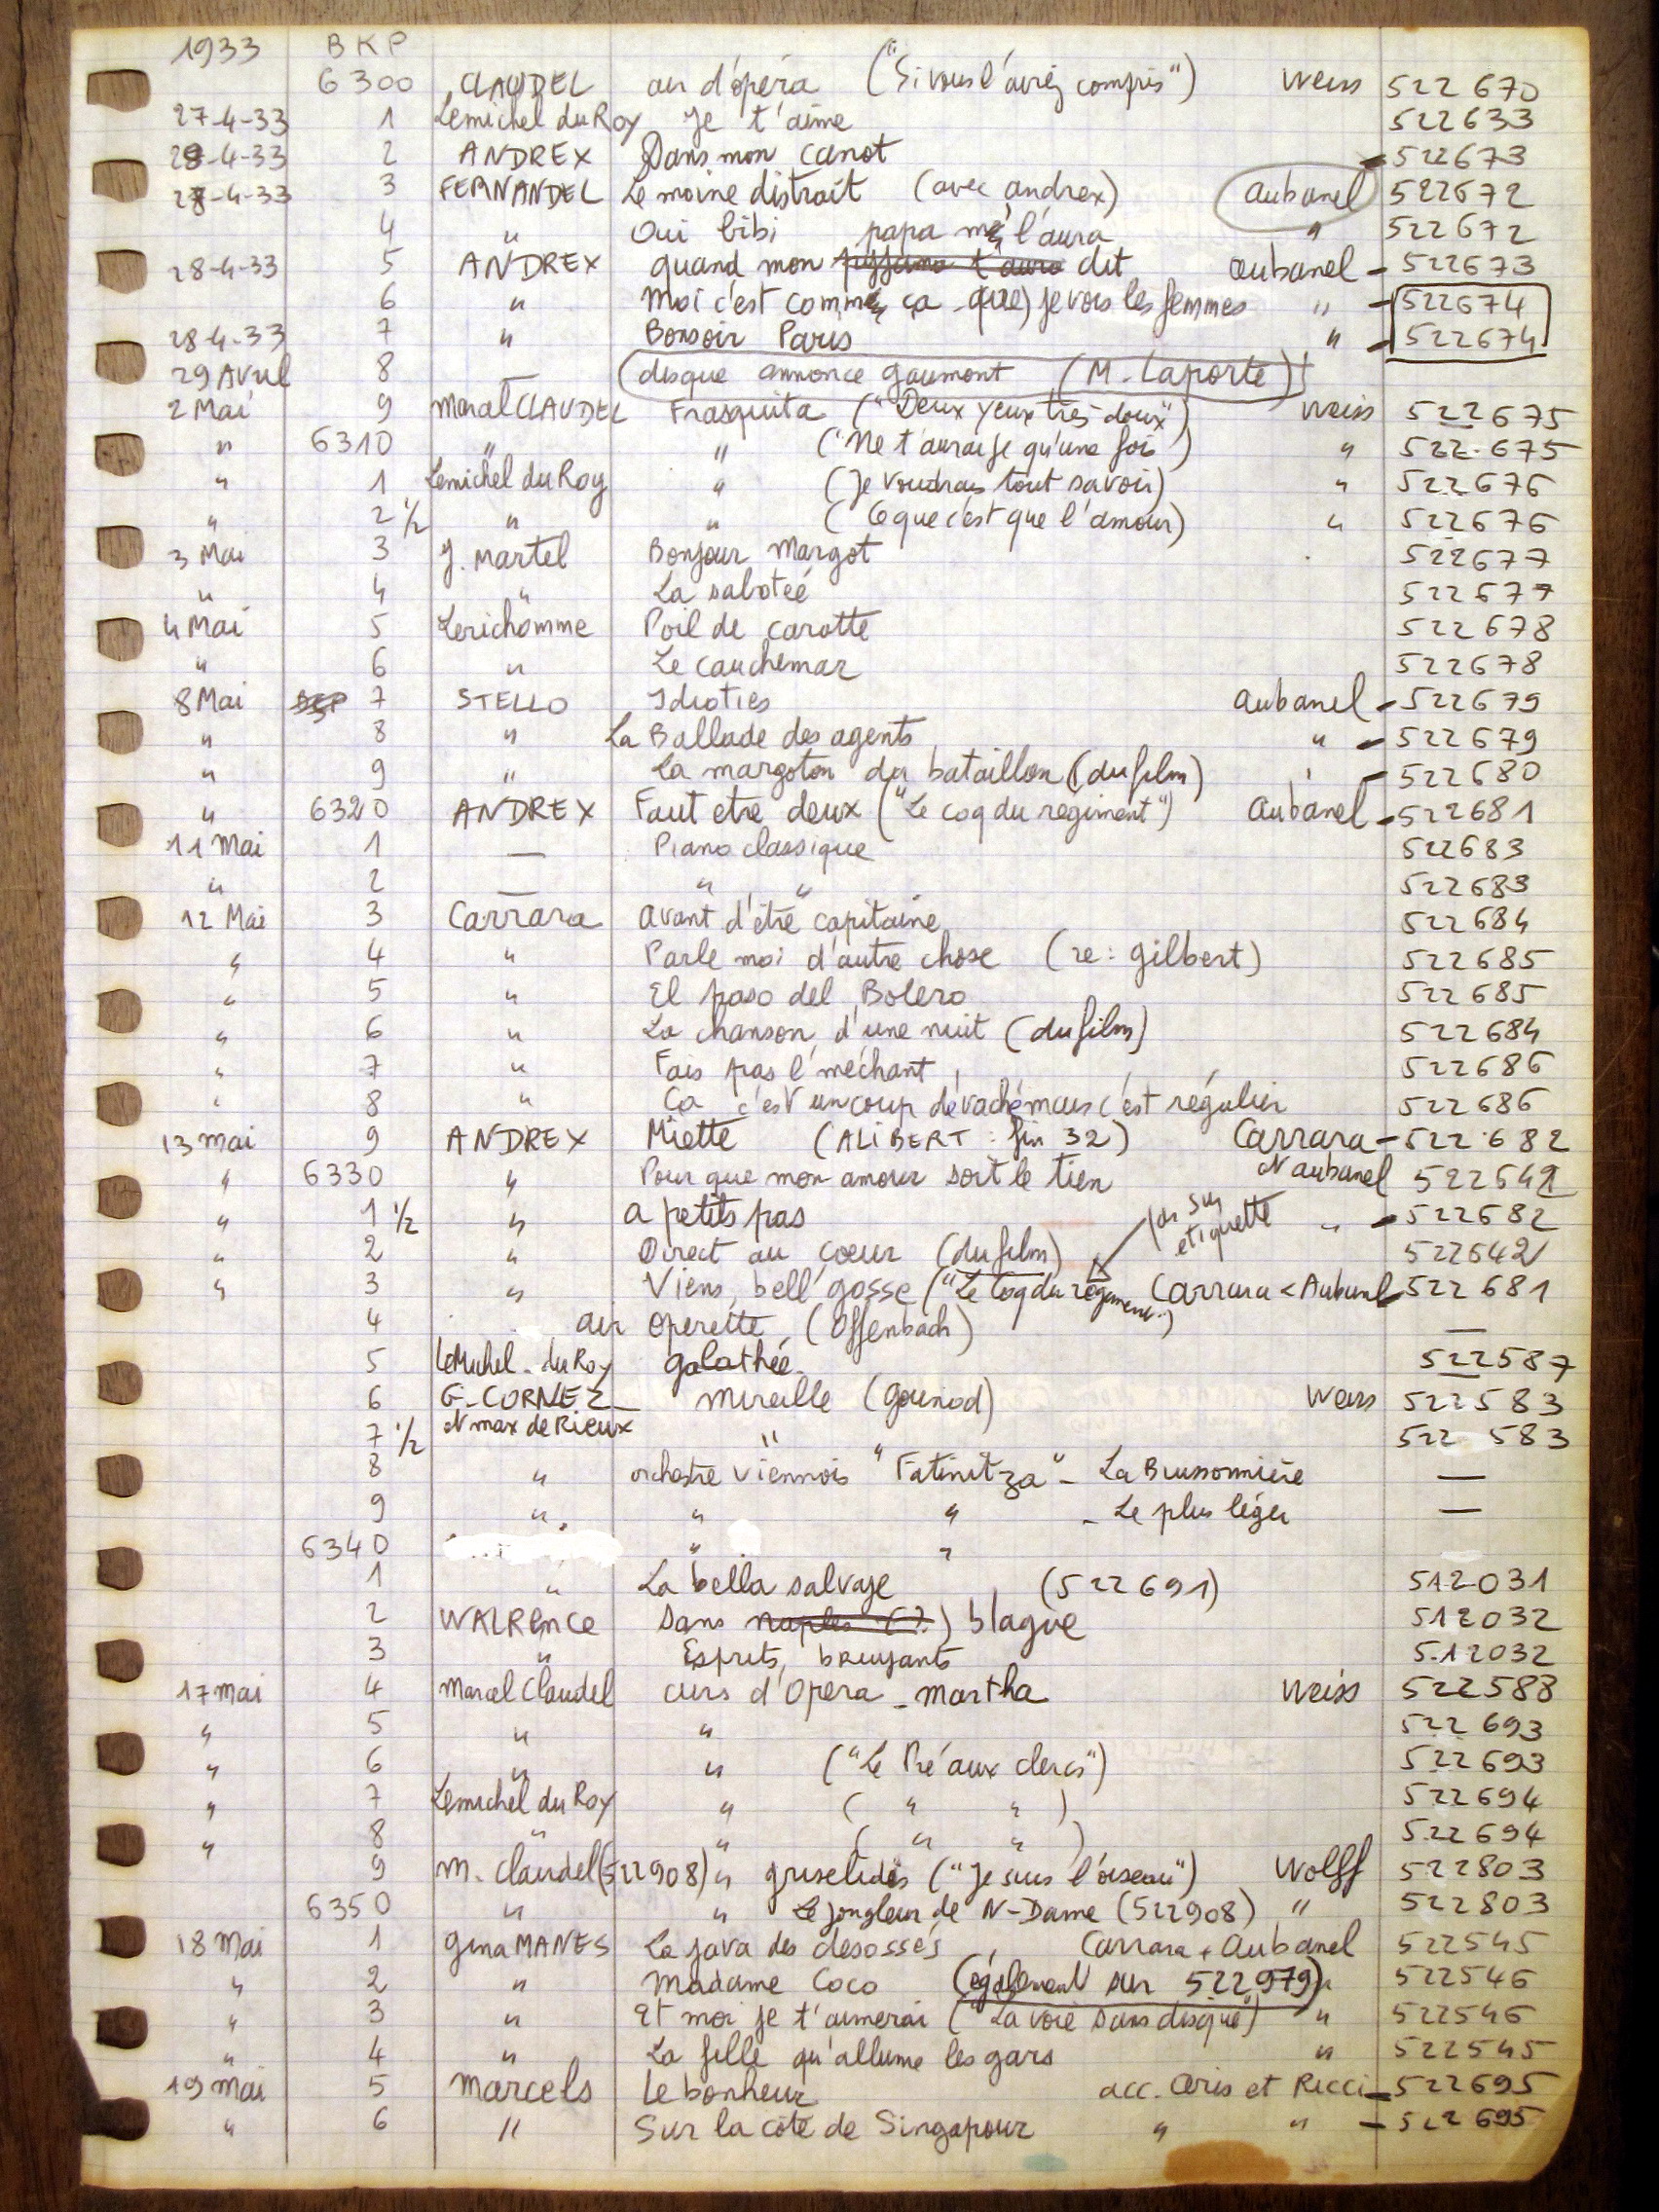 1933 BKP
6300 CLAUDEL air d'opéra ("Si vous l'aviez compris") Weiss 522 670
27-4-33 1 Lemichel du Roy Je t'aime 522633
28-4-33 2 ANDREX Dans mon canot - 522673
28-4-33 3 FERNANDEL Le moine distrait (avec andrex) Aubanel 522672
4 " Oui bibi " 522672
28-4-33 5 ANDREX quand mon papa me l'aura dit Aubanel - 522673
6 " Moi c'est comme ça (que) je vois les femmes " - 522674
28-4-33 7 " Bonsoir Paris " - 522674
29 Avril 8 — (disque annonce gaumont (M. Laporte))
2 Mai 9 Marcel CLAUDEL Frasquita ("Deux yeux très doux") Weiss 522675
" 6310 " " ("Ne t'aurai je qu'une fois") " 522.675
" 1 Lemichel du Roy " (Je voudrais tout savoir) " 522676
" 2 1/2 " " (Ce que c'est que l'amour) " 522676
3 Mai 3 J. Martel Bonjour Margot 522677
" 4 " La sabotée 522677
4 Mai 5 Lerichomme Poil de carotte 522678
" 6 " Le cauchemar 522678
8 Mai 7 STELLO Idioties Aubanel - 522679
" 8 " La Ballade des agents " - 522679
" 9 " La margoton du bataillon (du film) " - 522680
" 6320 ANDREX Faut etre deux ("Le coq du regiment") Aubanel - 522681
11 Mai 1 — Piano classique 522683
" 2 — " " 522683
12 Mai 3 Carrara avant d'être capitaine 522684
" 4 " Parle moi d'autre chose (re: gilbert) 522685
" 5 " El paso del Bolero 522685
" 6 " La chanson d'une nuit (du film) 522684
" 7 " Fais pas l'méchant 522686
" 8 " Ça c'est un coup de vache mais c'est régulier 522686
13 mai 9 ANDREX Miette (ALIBERT : fin 32) Carrara - 522.682
" 6330 " Pour que mon amour soit le tien N aubanel 522641
" 1 1/2 " a petits pas " - 522682
pas sur etiquette
" 2 " Direct au coeur (du film) 522642
" 3 " Viens, bell' gosse ("Le Coq du régiment") Carrara < Aubanel 522681
4 air Operette (Offenbach) —
5 Lemichel du Roy galathée 522587
6 G. CORNEZ mireille (gounod) Weiss 522583
7 1/2 N max de Rieux " 522 583
8 " orchestre viennois "Fatinitza" - La Buissonnière —
9 " " " - Le plus léger —
6340 " "
1 " La bella salvaje (522691) 512031
2 WALRENCE Sans blague 512032
3 " Esprits bruyants 512032
17 mai 4 Marcel Claudel airs d'Opera - martha Weiss 522588
" 5 " " 522693
" 6 " " ("Le Pré aux clercs") 522693
" 7 Lemichel du Roy " ( " " ) 522694
" 8 " " ( " " ) 522694
9 M. Claudel (522908) " griselidis ("Je suis l'oiseau") Wolff 522803
6350 " " Le jongleur de N-Dame (522908) " 522803
18 Mai 1 gina MANES La java des désossés Carrara + Aubanel 522545
" 2 " Madame Coco (également sur 522979) " 522546
" 3 " Et moi je t'aimerai ("La voie sans disque") " 522546
" 4 " La fille qu'allume les gars " 522545
19 mai 5 Marcels Le bonheur acc. Ceris et Ricci - 522695
" 6 " Sur la côte de Singapour " " - 522695